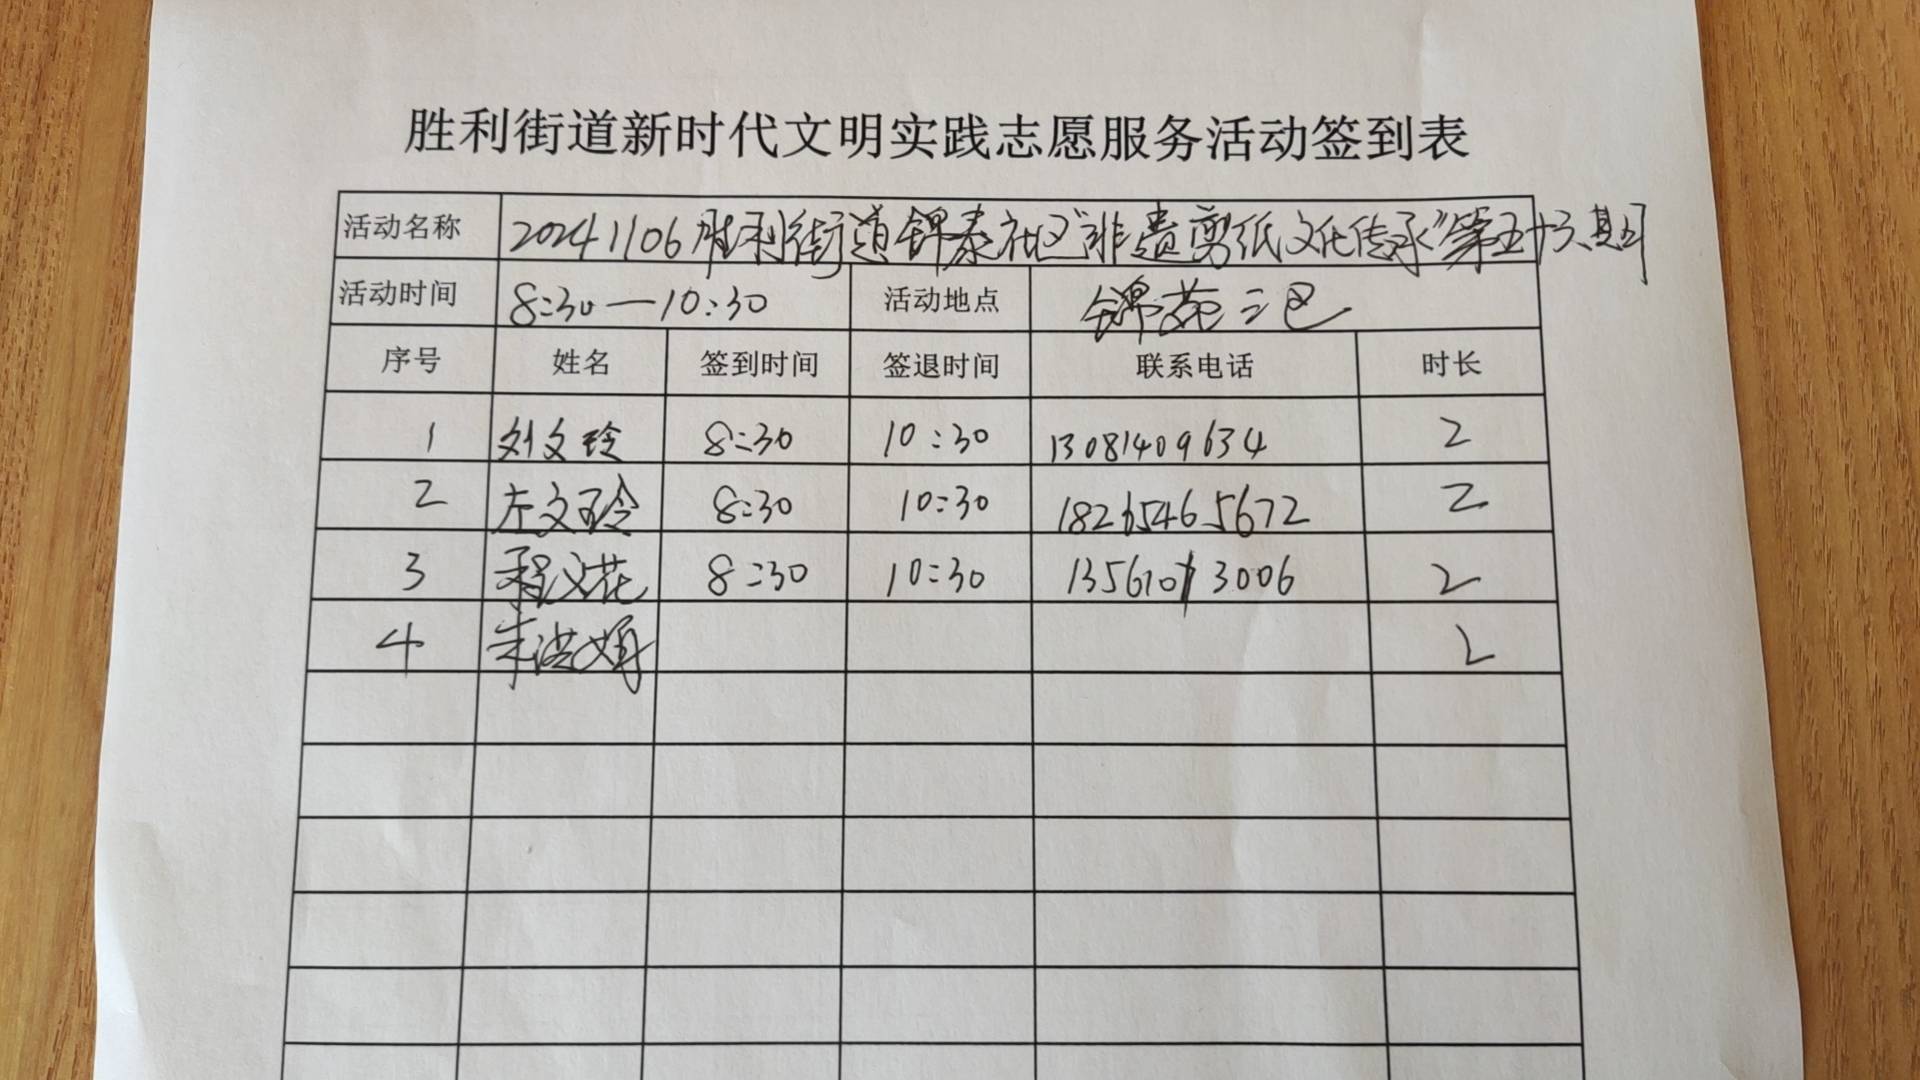 胜利街道新时代文明实践志愿服务活动签到表
活动名称 20241106胜利街道锦泰社区"非遗剪纸文化传承"第五十三期
活动时间 8:30—10:30 活动地点 锦苑二区
序号 姓名 签到时间 签退时间 联系电话 时长
1 刘文玲 8:30 10:30 13081409634 2
2 左文玲 8:30 10:30 18265465672 2
3 程文花 8:30 10:30 13561013006 2
4 朱洪娟 2